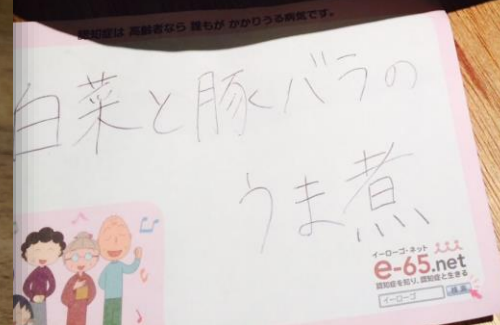 認知症は 高齢者なら 誰もが かかりうる病気です。
白菜と豚バラの
うま煮
イーローゴ・ネット
e-65.net
認知症を知り、認知症と生きる
イーローゴ 検索